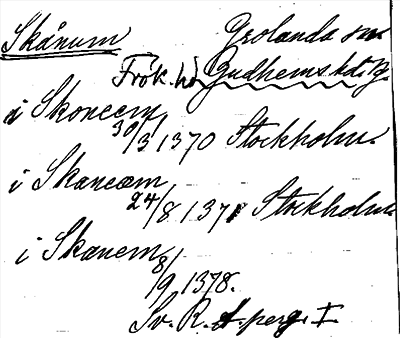 Skånum Grolanda sn
Frök. hd Gudhems hd. Vg.
i Skoncem
30/3 1370 Stockholm.
i Skaneam
24/8 1371 Stockholm.
i Skanem
8/9 1378.
Sv. R. A. perg. I